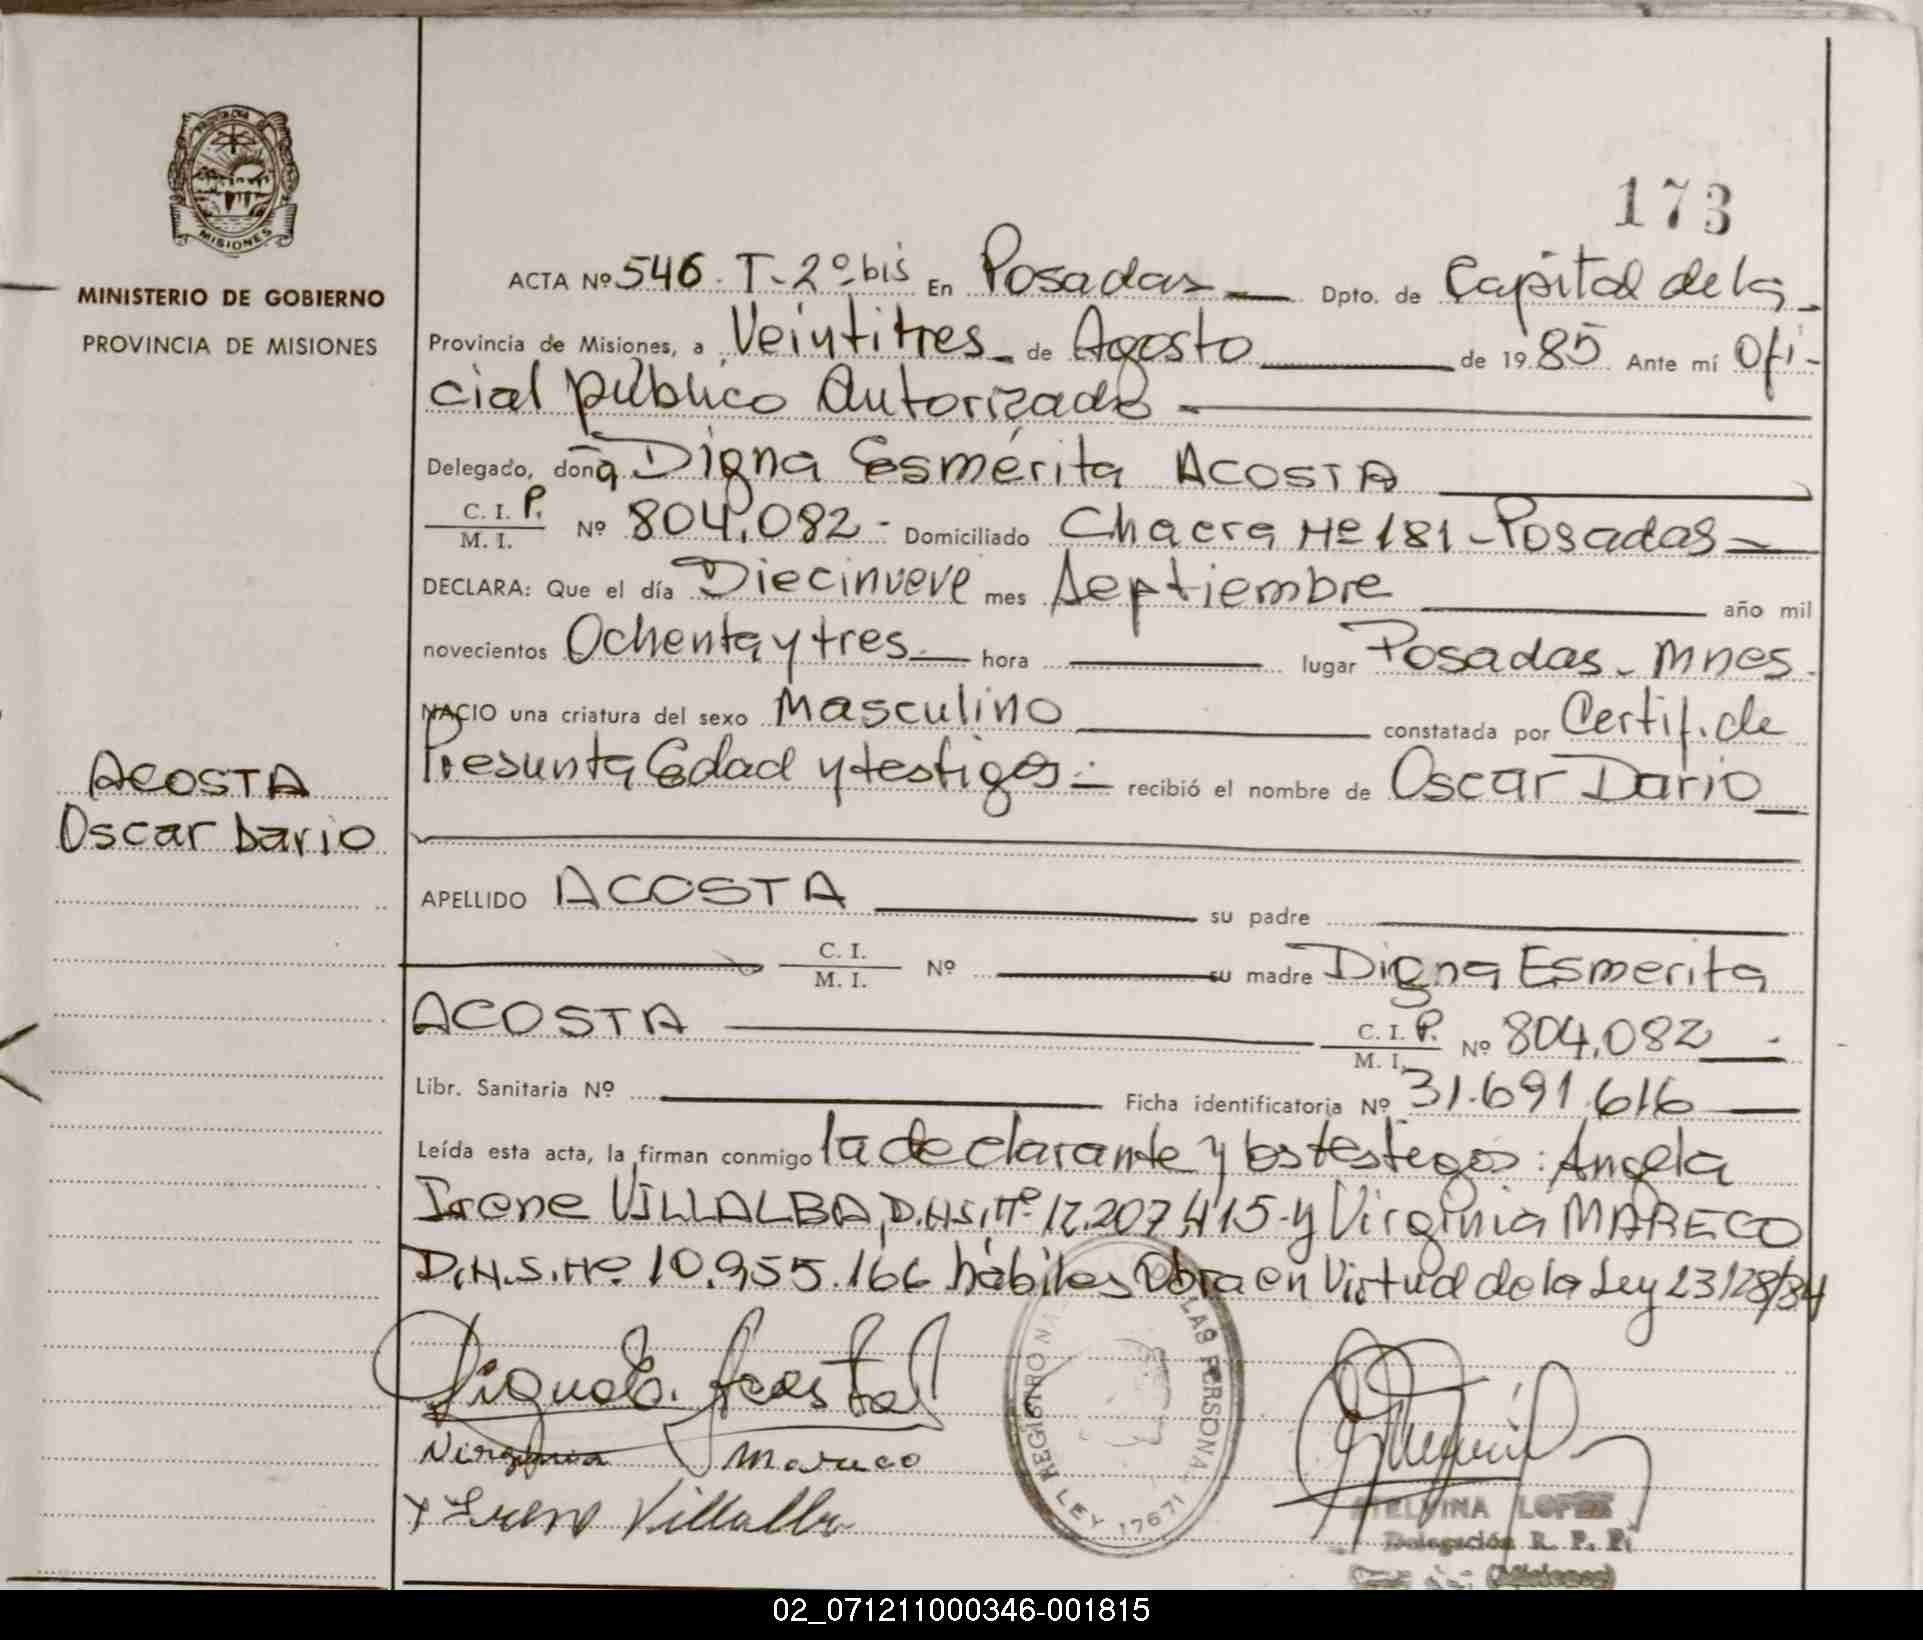 PROVINCIA DE
MISIONES
MINISTERIO DE GOBIERNO
PROVINCIA DE MISIONES
ACOSTA
Oscar Dario
173
ACTA Nº 546. T-2º bis En Posadas Dpto. de Capital de la
Provincia de Misiones, a Veintitres de Agosto de 1985 Ante mí Ofi-
cial público Autorizado
Delegado, doña Digna Esmérita ACOSTA
C. I. P. / M. I. Nº 804.082 - Domiciliado Chacra Nº 181 - Posadas
DECLARA: Que el día Diecinueve mes Septiembre año mil
novecientos Ochenta y tres hora lugar Posadas - Mnes.
NACIO una criatura del sexo Masculino constatada por Certif. de
Presunta Edad y testigos.- recibió el nombre de Oscar Dario
APELLIDO ACOSTA su padre
C. I. / M. I. Nº su madre Digna Esmerita
ACOSTA C. I. P. / M. I. Nº 804.082
Libr. Sanitaria Nº Ficha identificatoria Nº 31.691.616
Leída esta acta, la firman conmigo la declarante y los testigos: Angela
Irene VILLALBA, D.N.I. Nº 12.207.415 - y Virginia MARECO
D.N.I. Nº 10.955.166 hábiles Obra en Virtud de la Ley 23128/84
Digna E. Acosta
Virginia Mareco
Irene Villalba
REGISTRO NA LAS PERSONA
LEY 17671
ETELVINA LOPEZ
Delegación R. P. P.
(Misiones)
02_071211000346-001815